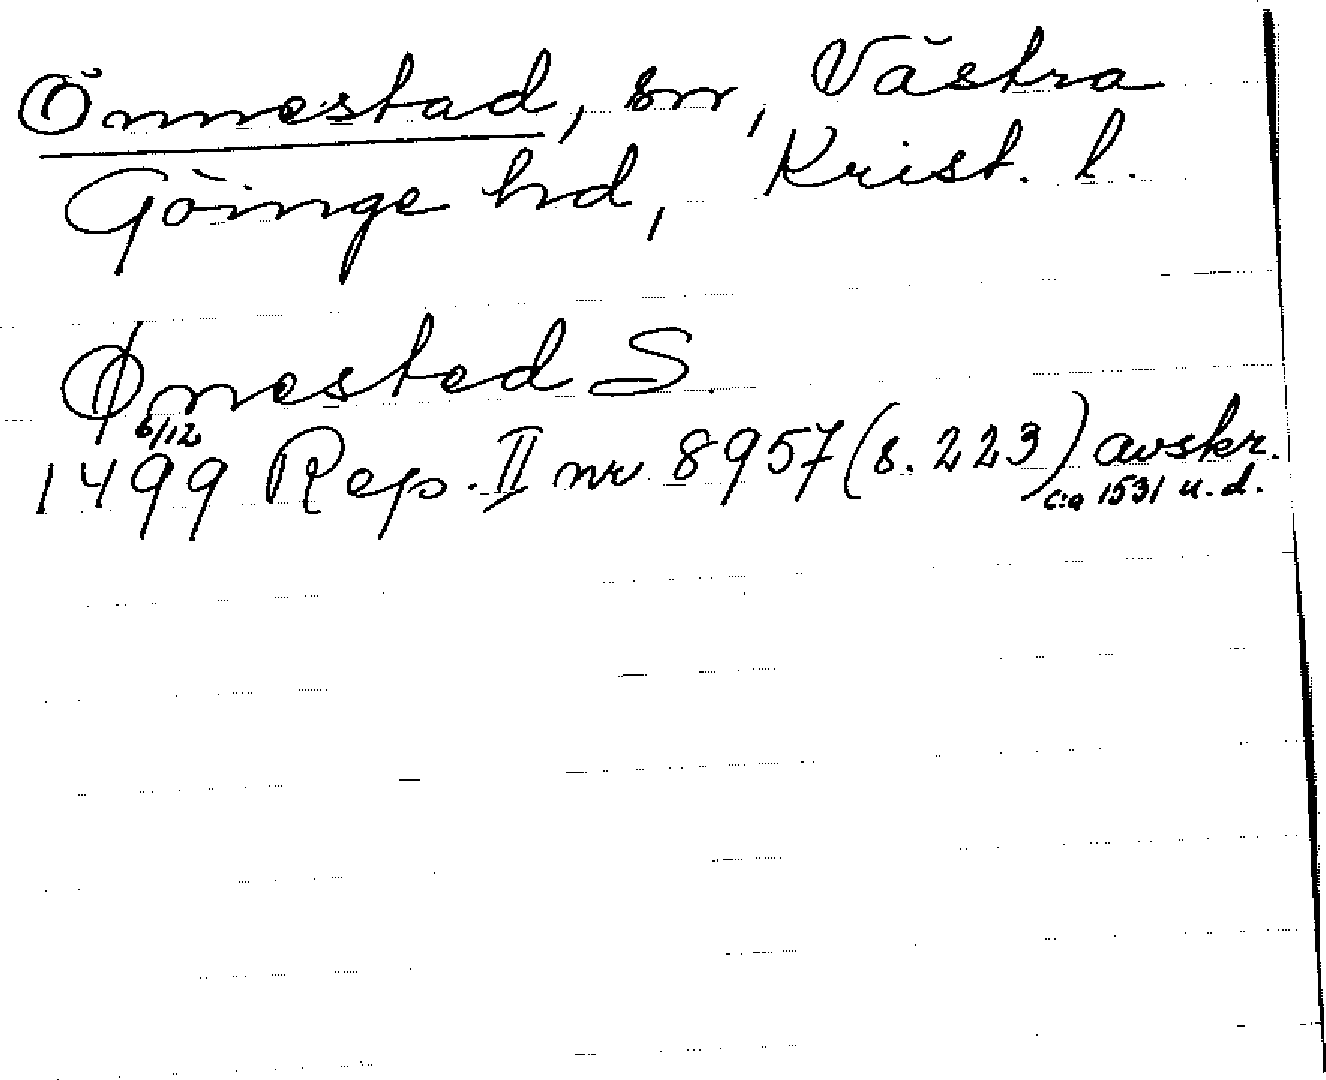 Önnestad, sn, Västra
Göinge hd, Krist. l.
Ønnestad S.
6/12
1499 Rep. II nr 8957 (s. 223) avskr.
c:a 1531 u. d.